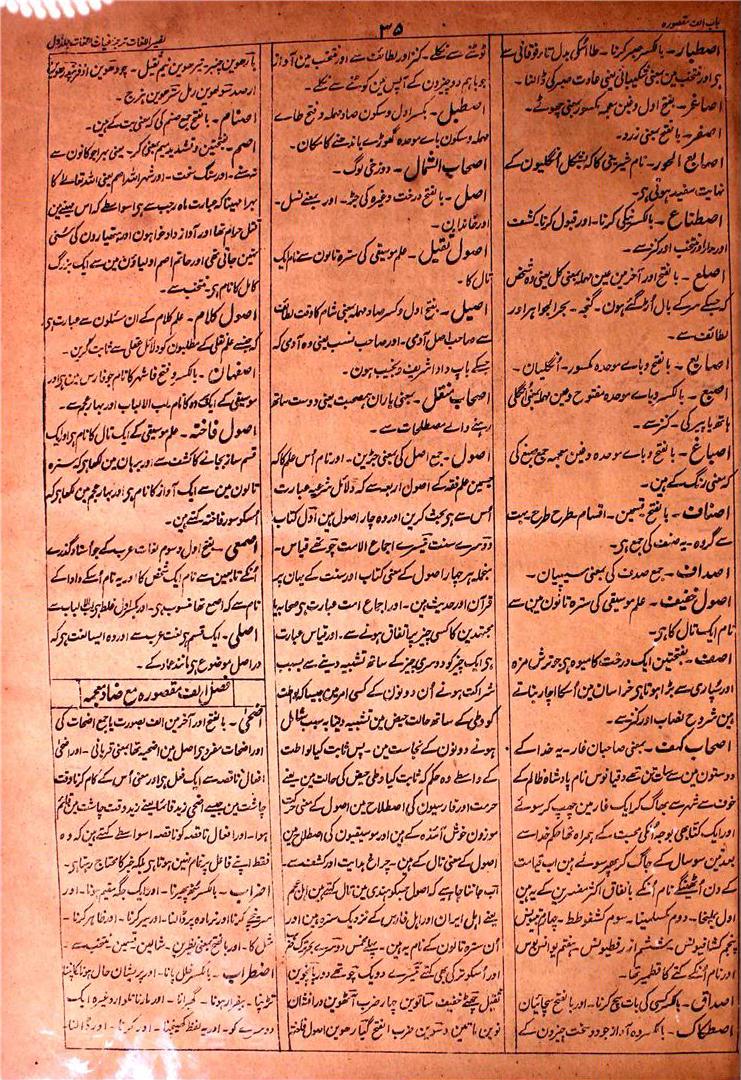 باب الف مقصورہ
۳۵
نصیر اللغات ترجمہ غیاث اللغات جلد اول
اصطبار۔ بالکسر صبر کرنا۔ طا اسکی بدل تاء فوقانی سے
ہی اور منتخب مین بمعنی شکیبائی یعنی عادت صبر کی ڈالنا۔
اصاغر۔ بفتح اول وغین معجمہ مکسور بمعنی چھوٹے۔
اصفر۔ بالفتح بمعنی زرد۔
اصابع الحور۔ نام شیرینی کا کہ بشکل انگلیون کے
نہایت سفید ہوتی ہی۔
اصطناع۔ بالکسر نیکی کرنا۔ اور قبول کرنا۔ کشف
اور مدار و منتخب اور کنز سے۔
اصلع۔ بالفتح اور آخر مین عین مہملہ بمعنی کل یعنی وہ شخص
کہ جسکے سر کے بال اُڑ گئے ہون۔ گنجہ۔ بحر الجواہر اور
لطائف سے۔
اصابع۔ بالفتح وباے موحدہ مکسور۔ انگلیان۔
اصبع۔ بالکسر وباے موحدہ مفتوح وعین مہملہ بمعنی اُنگلی
ہاتھ یا پیر کی۔ کنز سے۔
اصباغ۔ بالفتح وباے موحدہ وغین معجمہ جمع صبغ کی
کہ بمعنی رنگ کے ہین۔
اصناف۔ بالفتح قسمین۔ اقسام طرح طرح بہت
سے گروہ۔ یہ صنف کی جمع ہی۔
اصداف۔ جمع صدف کی بمعنی سیپیان۔
اصول خفیف۔ علم موسیقی کی سترہ تانون مین سے
نام ایک تال کا ہی۔
اصف۔ بفتحتین ایک درخت کا میوہ ہی جو ترش مزہ
اور سپاری سے بڑا ہوتا ہی خراسان مین اُسکا اچار بناتے
ہین شروح نصاب اور کنز سے۔
اصحاب کہف۔ بمعنی صاحبان غار۔ یہ خدا کے
دوستون مین سے سات تن تھے دقیانوس نام بادشاہ ظالم کے
خوف سے شہر سے بھاگ کر ایک غار مین چھپ کر سوئے
اور ایک کتا بھی بوجہ اُنکی محبت کے ہمراہ تھا حکم خدا سے
بعد تین سو سال کے جاگ کر پھر سوئے ہین اب قیامت
کے دن اُٹھینگے نام اُنکے بااتفاق اکثر مفسرین کے یہ ہین
اول یملیخا۔ دوم مکسلمینا۔ سوم کشفوطط۔
اور نام اُنکے کتے کا قطمیر تھا۔
اصداق۔ بالکسر کسی کی بات سچ کرنا۔ اور بالفتح سچائیان
اصطکاک۔ بالکسر وہ آواز جو دو سخت چیزون کے
ٹوٹنے سے نکلے۔ کنز اور لطائف سے اور منتخب مین آواز
جو باہم دو چیزون کے آپس مین کوٹنے سے نکلے۔
اصطبل۔ بکسر اول وسکون صاد مہملہ وفتح طاے
مہملہ وسکون باے موحدہ گھوڑے باندھنے کا مکان۔
اصحاب الشمال۔ دوزخی لوگ۔
اصل۔ بالفتح درخت وغیرہ کی جڑ۔ اور بمعنے نسل۔
اور خاندان۔
اصول ثقیل۔ علم موسیقی کی سترہ تانون سے نام ایک
تال کا۔
اصیل۔ بفتح اول وکسر صاد مہملہ بمعنی شام کا وقت لطائف
سے صاحب اصل آدمی۔ اور صاحب نسب یعنی وہ آدمی کہ
جسکے باپ دادا شریف ونجیب ہون۔
اصحاب نقل۔ بمعنی یاران ہم صحبت یعنی دوست ساتھ
رہنے والے مصطلحات سے۔
اصول۔ جمع اصل کی بمعنی جڑین۔ اور نام اُس علم کا کہ
جسمین علم فقہ کے اصول اربعہ سے کہ دلائل شرعیہ عبارت
اُس سے ہی بحث کرین اور وہ چار اصول ہین اوّل کتاب
دوسرے سنت تیسرے اجماع الامت چوتھے قیاس۔
منجملہ ہر چہار اصول کے معنی کتاب اور سنت کے یہان پر
قرآن اور حدیث ہین۔ اور اجماع امت عبارت ہی صحابہ یا
مجتہدین کا کسی چیز پر اتفاق ہونے سے۔ اور قیاس عبارت
ہی ایک چیز کو دوسری چیز کے ساتھ تشبیہ دینے سے بسبب
شراکت ہونے اُن دونون کے کسی امر مین جیسا کہ لواطت
کو وطی کے ساتھ حالت حیض مین تشبیہ دینا بسبب شامل
ہونے دونون کے نجاست مین۔ پس ثابت کیا لواطت
کے واسطے وہ حکم کہ ثابت کیا وطی حیض کی حالت مین یعنے
حرمت اور فارسیون کی اصطلاح مین اصول کے معنی حرکت
موزون خوش آئندہ کے ہین اور موسیقیون کی اصطلاح مین
اصول کے معنی تال کے ہین۔ چراغ ہدایت اور کشف سے۔
اب جاننا چاہیے کہ اصول جسکو ہندی مین تال کہتے ہین اہل عجم
یعنے اہل ایران اور اہل فارس کے نزدیک سترہ ہین اور
اُن سترہ تانون کے نام یہ ہین۔ پہلے مخمس دوسرے
اور اُسکو ترکی بھی کہتے تیسرے دویک چوتھے دور پانچوین
ثقیل چھٹے خفیف ساتوین چہار ضرب آٹھوین درافشان
نوین ماتین دسوین ضرب الفتح گیارھوین اصول فاختہ
بارھوین چنبر تیرھوین نیم ثقیل۔ چودھوین ازفر پندرھوین
ارصد سولھوین رمل سترھوین ہزج۔
اصنام۔ بالفتح جمع صنم کی کہ بمعنی بت کے ہین۔
اصم۔ بفتحتین وتشدید میم بمعنی کر۔ یعنی بہرا جو کانون سے
نہ سنے۔ اور سنگ سخت۔ اور شہر اللہ اصم یعنی اللہ تعالے کا
بہرا مہینا کہ عبارت ماہ رجب سے ہی اس واسطے کہ اس مہینے مین
قتل حرام تھا اور آواز داد خواہون اور ہتیارون کی سنی
نہین جاتی تھی اور حاتم اصم اولیاؤن مین سے ایک بزرگ
کامل کا نام ہی منتخب سے۔
اصول کلام۔ علم کلام کے ان مسئلون سے عبارت ہی
کہ جسمے علم نقلی کے مطلبون کو دلائل عقلی سے ثابت کرین۔
اصفہان۔ بالکسر وفتح فا شہر کا نام جو فارس مین ہی اور
موسیقی کے ایک پردہ کا نام لب الالباب اور بہار عجم سے۔
اصول فاختہ۔ علم موسیقی کے ایک تال کا نام ہی اور ایک
قسم ساز بجانے کا کشف سے اور برہان مین لکھا ہی کہ سترہ
تانون مین سے ایک آواز کا نام ہی اور بہار عجم مین لکھا ہی کہ
اُسکو سور فاختہ کہتے ہین۔
اصمعی۔ بفتح اول وسوم لغات عرب کے جو استاد گذرے
اُنکے تابعین سے نام ایک شخص کا اور یہ نام اُسکے دادا کے
نام سے کہ اصمع تھا منسوب ہی۔ اور بکسر اول غلط ہی لب الالباب سے
اصلی۔ ایک قسم ہی لغت عرب سے اور وہ ایسا لغت ہی کہ
در اصل موضوع ہی مانند جماد کے۔
فصل الف مقصورہ مع ضاد معجمہ
اضحیٰ۔ بالفتح اور آخر مین الف بصورت یا جمع اضحات کی
اور اضحات مفرد ہی اصل مین اضحیہ تھا بمعنی قربانی۔ اور اضحیٰ
افعال ناقصہ سے ایک فعل ہی اور معنی اُس کے کام کرنا وقت
چاشت مین جیسے اضحیٰ زید قائما یعنے زید وقت چاشت مین قائم
ہوا۔ اور افعال ناقصہ کو ناقصہ اسواسطے کہتے ہین کہ وہ
فقط اپنے فاعل پر تمام نہین ہوتا ہی بلکہ خبر کا محتاج رہتا ہی۔
اضراب۔ بالکسر منھ پھیرنا۔ اور ایک جگہ مقیم ہونا۔ اور
سر نیچے کرنا اور نر مادہ پر ڈالنا۔ اور سیر کرنا۔ اور ظاہر کرنا۔
اضطراب۔ بالکسر خلل پانا۔ اور پریشان حال ہونا کانپنا
تڑپنا۔ بیقرار ہونا۔ گھبرانا۔ اور مارنا تلوار وغیرہ ایک
دوسرے کو۔ اور یہ لفظ